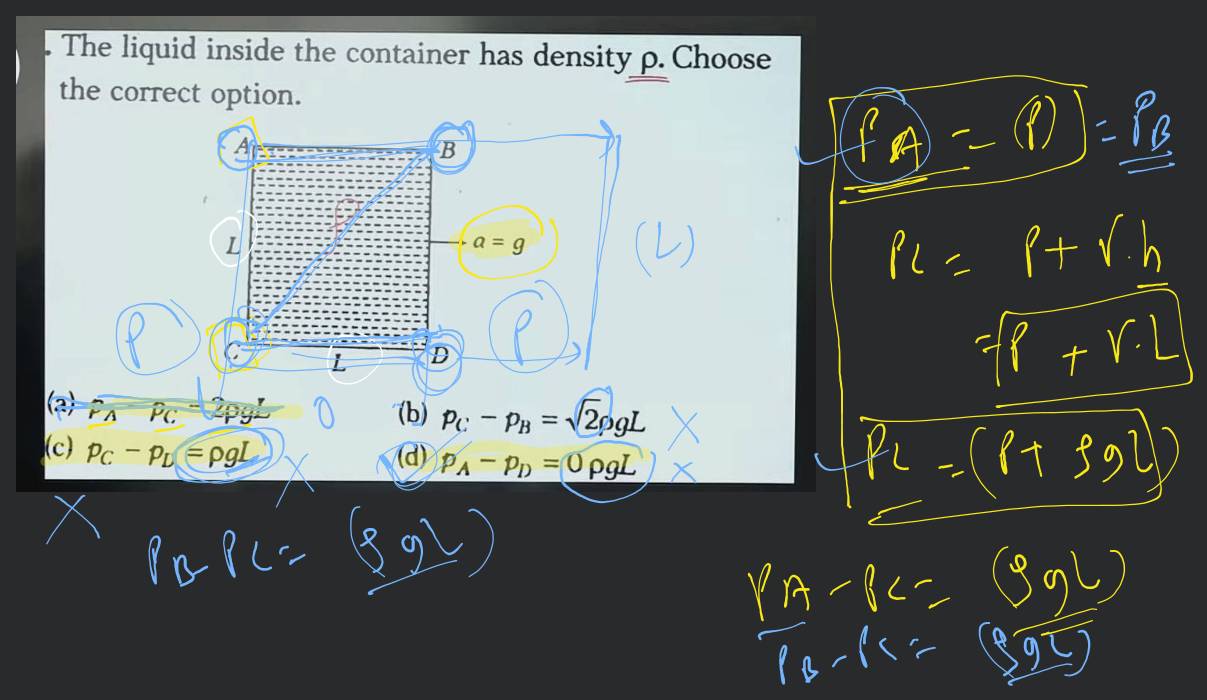 . The liquid inside the container has density ρ. Choose
the correct option.
A
B
L
ρ
a = g
(L)
P
P
C
L
D
(a) pA − pC = 2ρgL
0
(b) pC − pB = √2ρgL
(c) pC − pD = ρgL
(d) pA − pD = 0 ρgL
PB - PC = (ρgL)
PA = (P) = PB
PC = P + γ.h
= P + γ.L
PC = (P + ρgL)
PA - PC = (ρgL)
PB - PC = (ρgL)